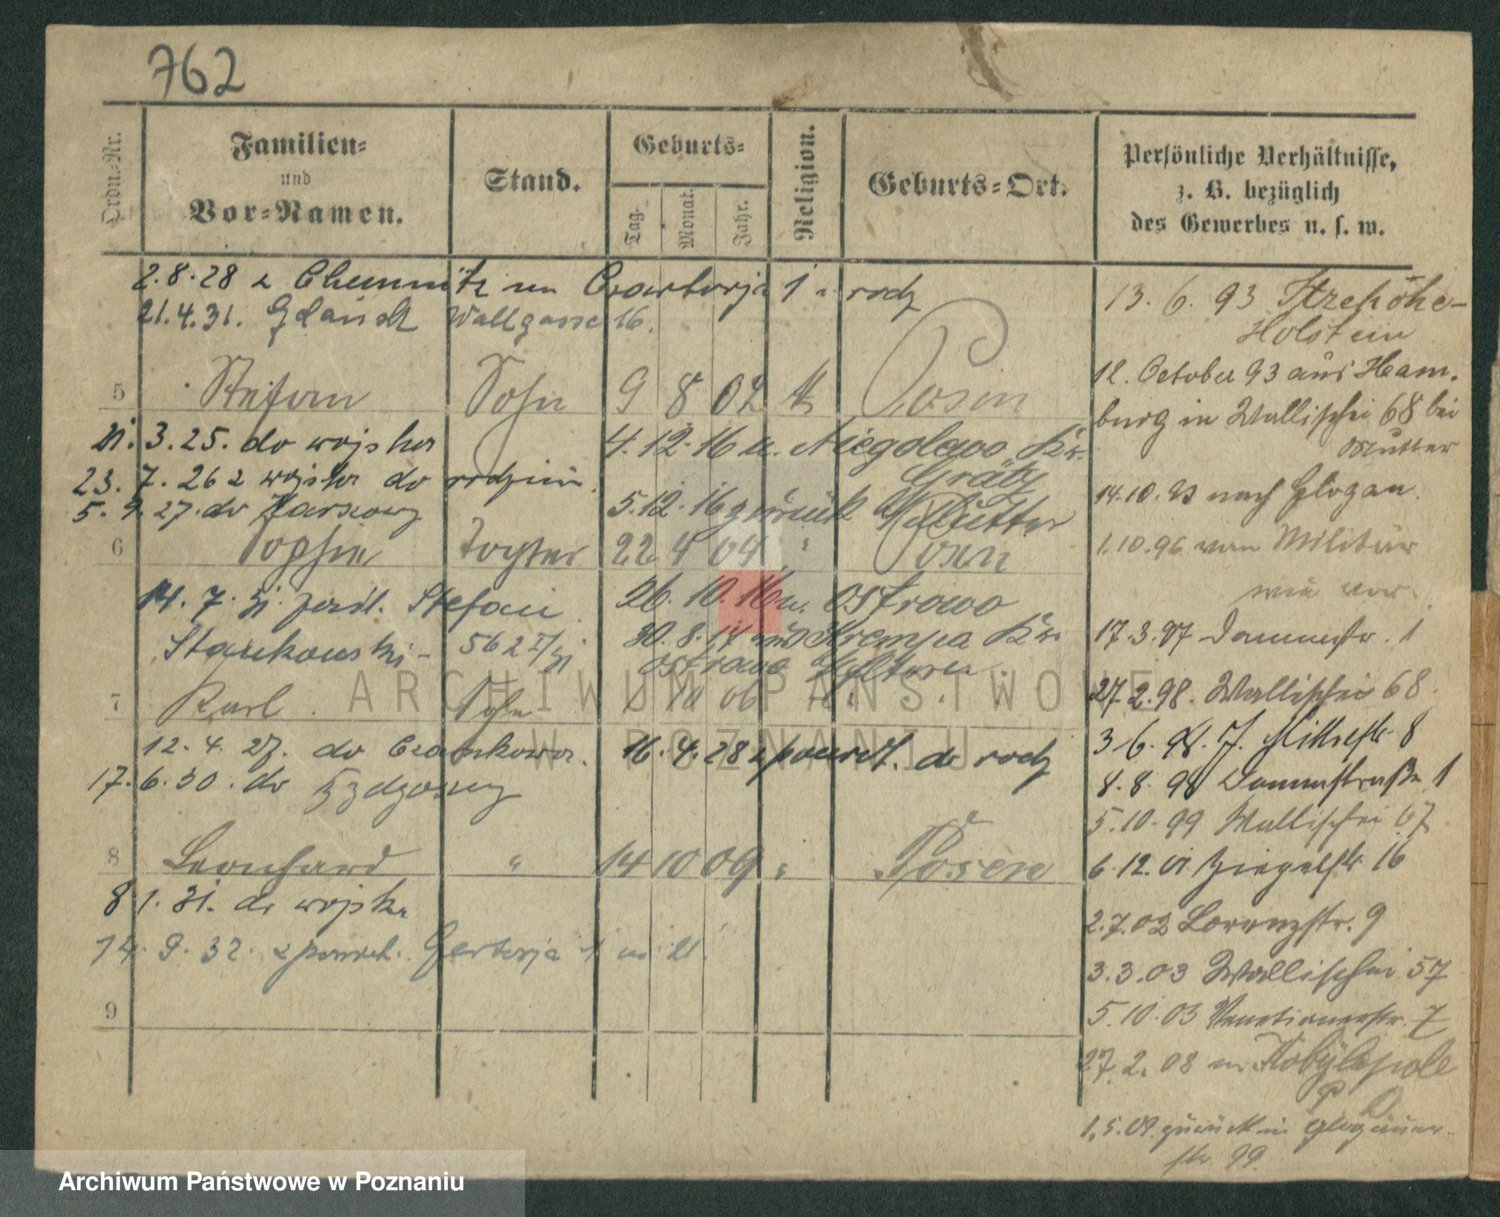 762
Ordn.-Nr.
Familien-
und
Vor-Namen.
Stand.
Geburts-
Tag.
Monat.
Jahr.
Religion.
Geburts-Ort.
Persönliche Verhältnisse,
z. B. bezüglich
des Gewerbes u. s. w.
2.8.28 z Chemnitz un Czartorja 1 rodz
21.4.31. Gdańsk Wallgasse 16.
5 Stefan Sohn 9 8 02 k Posen
3.25. do wojska
23.7.26 z wojska do rodziny
5.9.27. do Warszawy
4.12.16 u. Niegolewo Kr.
Grätz
5.12.16 zurück Mutter
6 Sophie Tochter 22 4 04 " Posen
14.7. Stefan
Stankowski 562
26.10.16 u. Ostrowo
30.8.17 aus Krempa Kr.
Ostrowo
7 Karl Sohn 10 06
12.4.27. do Czarnkowa.
16.4.28 z powrot. do rodz
17.6.30. do Bydgoszczy
8 Leonhard " 14 10 09 " Posen
8 1.31. do wojska
14.9.32. z powrot.
9
13.6.93 Itzehöhe-
Holstein
12. October 93 aus Ham-
burg in Wallischei 68 bei
Mutter
14.10.93 nach Glogau.
1.10.96 vom Militär
wie vor.
17.3.97 Dammstr. 1
27.2.98. Wallischei 68.
3.6.98. 8
8.8.98 Dammstraße 1
5.10.99 Wallischei 67
6.12.01 Ziegelstr. 16
2.7.02 Lorenzstr. 9
3.3.03 Wallischei 57
5.10.03 Venetianerstr. 7
27.2.08 n. Kobylepole
1.5.09. zurück in Glogauer-
str. 99
ARCHIWUM PAŃSTWOWE
W POZNANIU
Archiwum Państwowe w Poznaniu